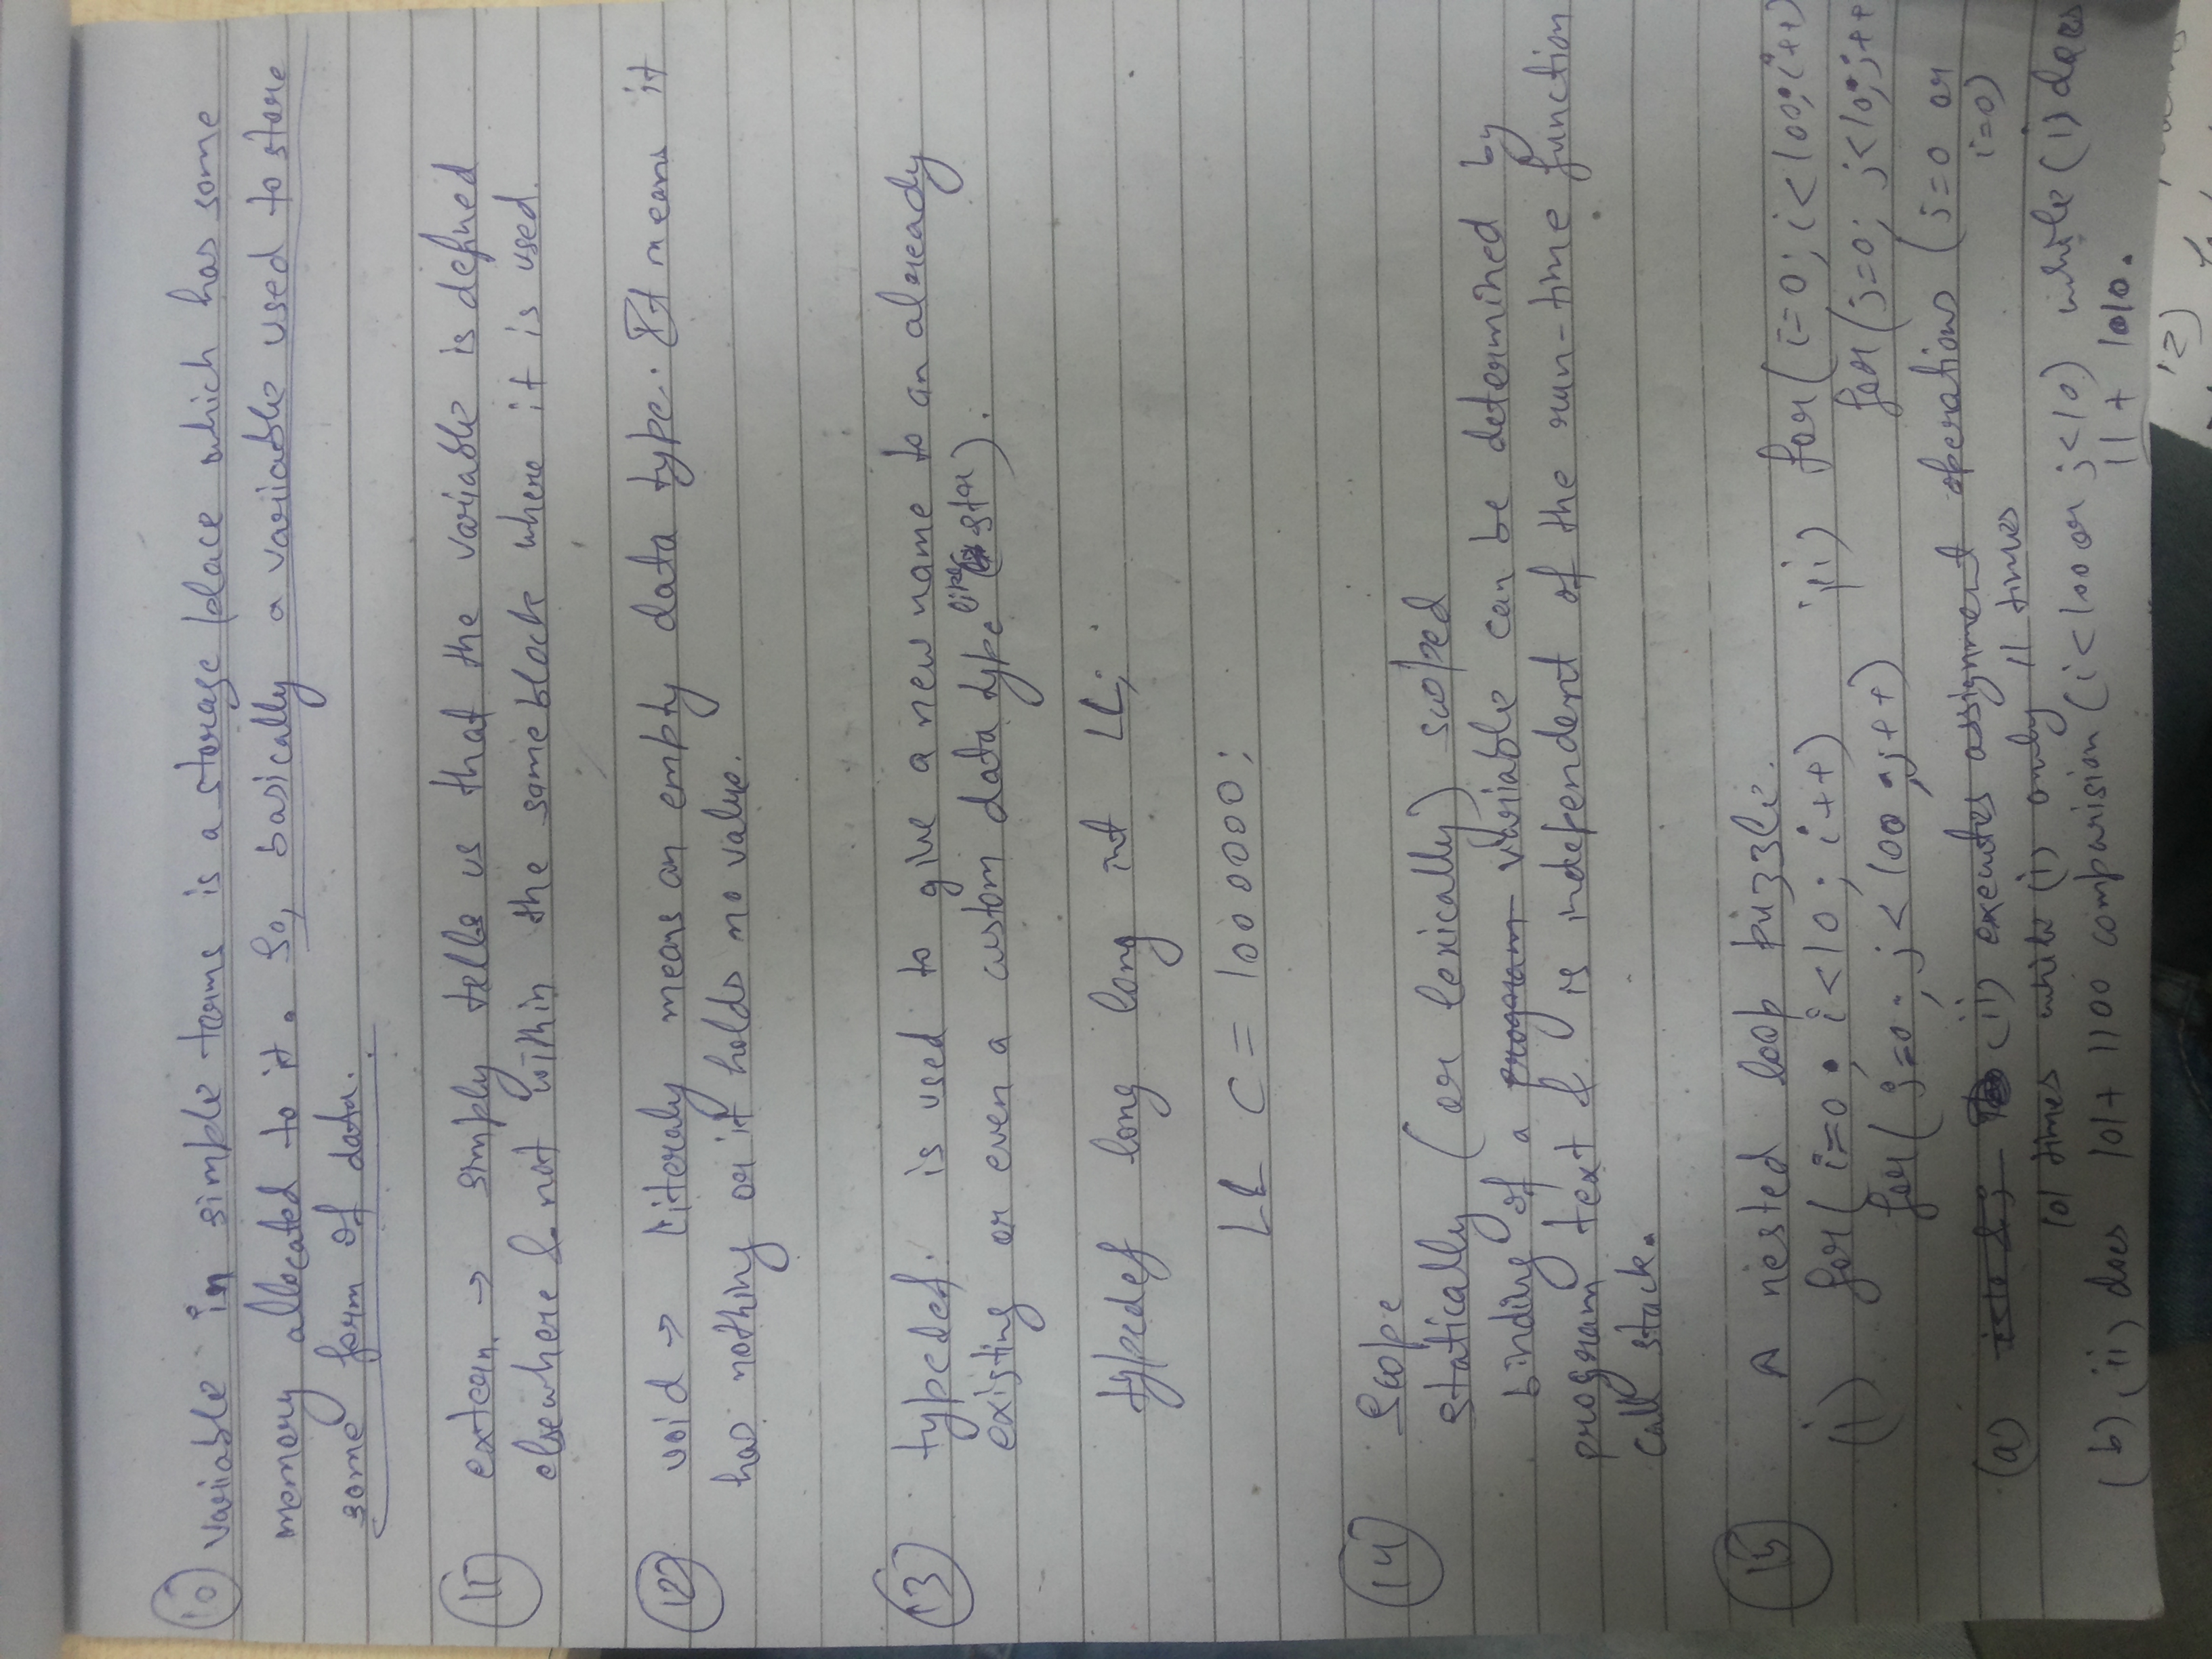 10 Variable in simple terms is a storage place which has some
memory allocated to it. So, basically a variable used to store
some form of data.
11 extern. → simply tells us that the variable is defined
elsewhere & not within the same block where it is used.
12 void → literaly means an empty data type. It means it
has nothing or it holds no value.
13 typedef. is used to give a new name to an already
existing or even a custom data type like (str).
typedef long long int LL;
LL C = 1000000;
14 Scope
statically (or lexically) scoped
binding of a program variable can be determined by
program text & is independent of the run-time function
call stack.
15 A nested loop puzzle.
(i) for( i=0; i<10; i++) ii) for( i=0; i<100; i++)
for( j=0; j<100; j++) for (j=0; j<10; j++
(a) (ii) executes assignment operations (j=0 or
i=0)
101 times while (i) only 11 times
(b) (ii) does 101+ 1100 comparision (i<100 or j<10) while (i) does
11 + 1010.
12)